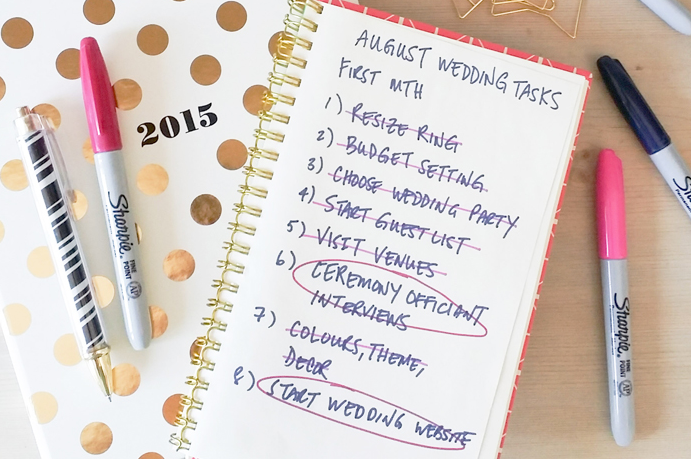 AUGUST WEDDING TASKS
FIRST MTH
1) RESIZE RING
2) BUDGET SETTING
3) CHOOSE WEDDING PARTY
4) START GUEST LIST
5) VISIT VENUES
6) CEREMONY OFFICIANT
INTERVIEWS
7) COLOURS, THEME,
DECOR
8) START WEDDING WEBSITE
2015
Sharpie
FINE POINT
AP
Sharpie
FINE POINT
AP
Sharpie